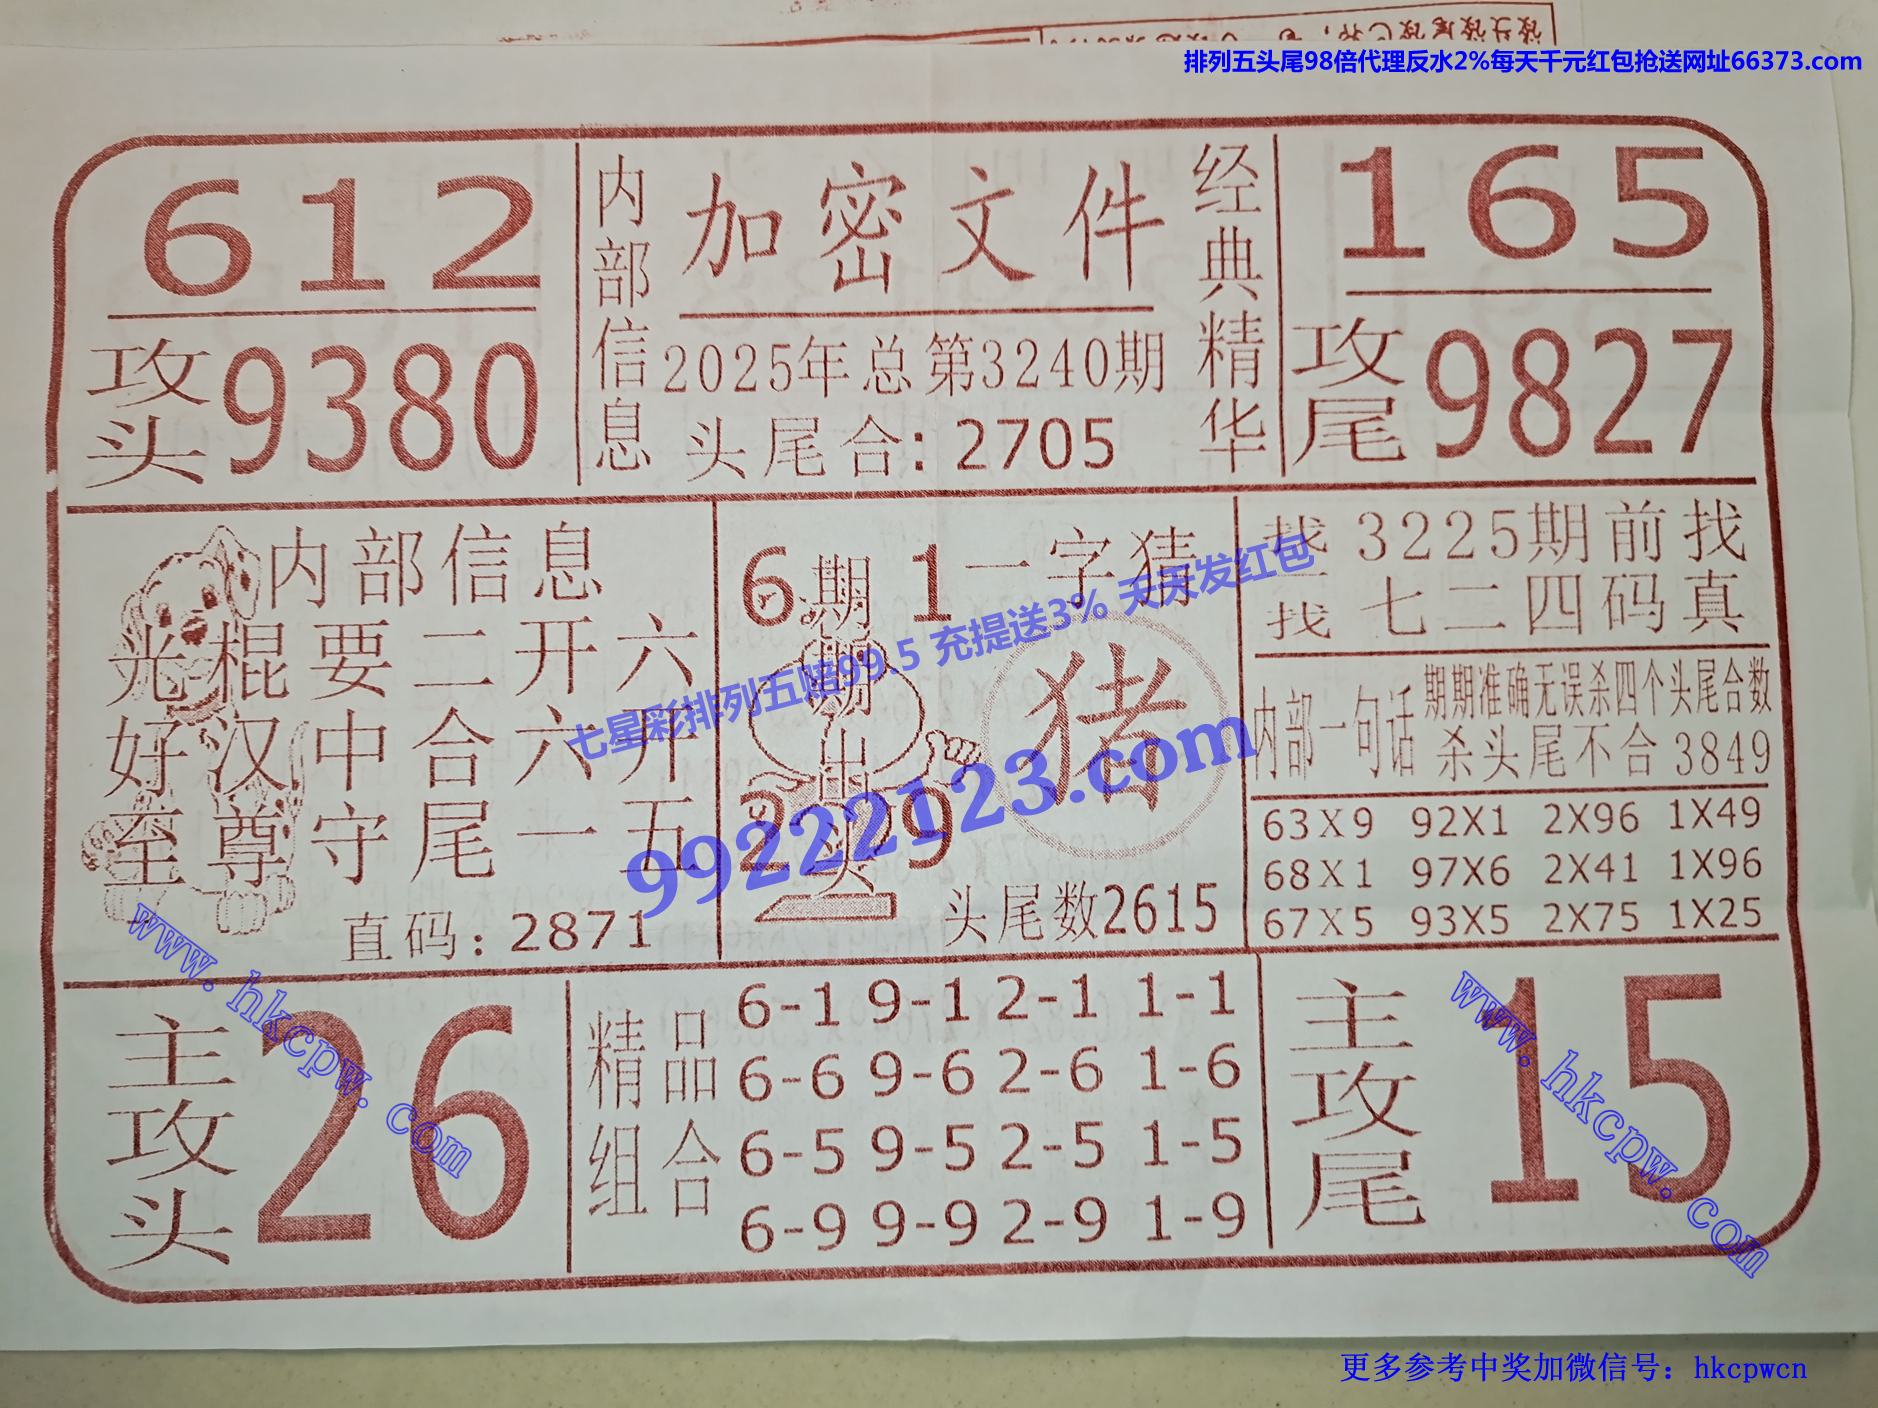 排列五头尾98倍代理反水2%每天千元红包抢送网址66373.com
612
攻头 9380
内部信息
加密文件
2025年总第3240期
头尾合：2705
经典精华
165
攻尾 9827
内部信息
光棍要二开六
好汉中合六开
至尊守尾一五
直码：2871
6期1一字猜
期期出头
猪
229
头尾数2615
找一找
3225期前找
七二四码真
内部一句话
期期准确无误杀四个头尾合数
杀头尾不合3849
63X9 92X1 2X96 1X49
68X1 97X6 2X41 1X96
67X5 93X5 2X75 1X25
七星彩排列五赔99.5 充提送3% 天天发红包
99222123.com
主攻头 26
精品组合
6-1 9-1 2-1 1-1
6-6 9-6 2-6 1-6
6-5 9-5 2-5 1-5
6-9 9-9 2-9 1-9
主攻尾 15
www.hkcpw.com
www.hkcpw.com
更多参考中奖加微信号：hkcpwcn